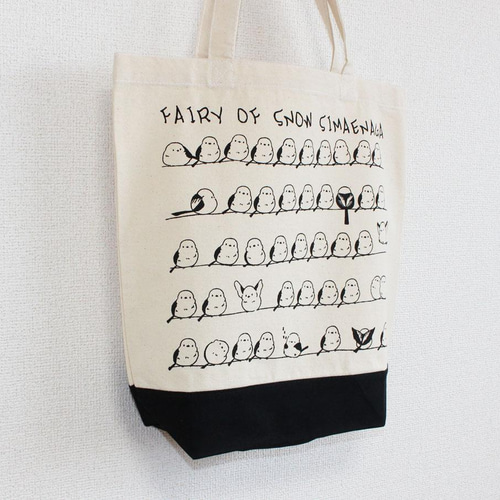 FAIRY OF SNOW SIMAENAGA